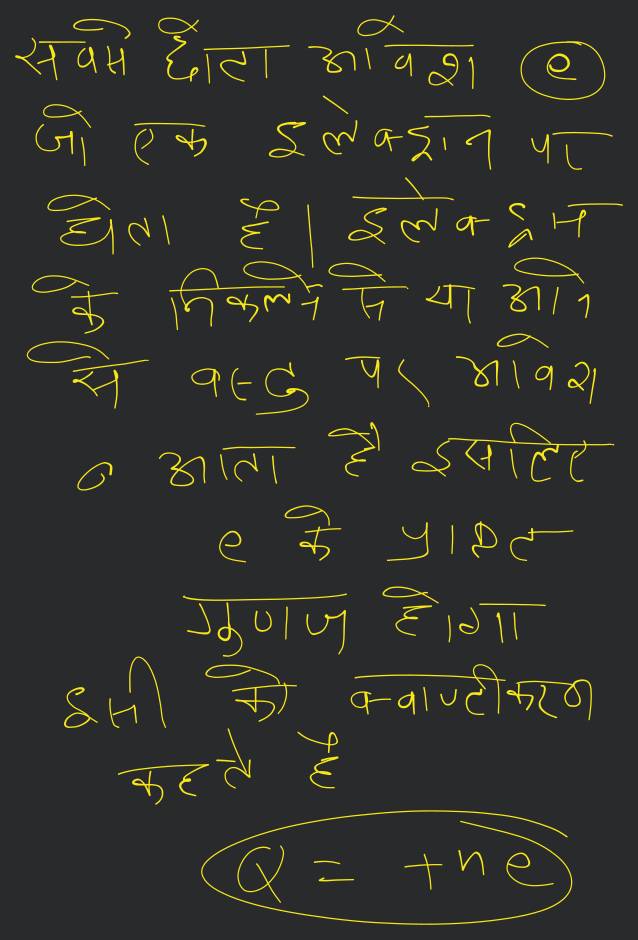 सबसे छोटा आवेश e
जो एक इलेक्ट्रान पर
होता है। इलेक्ट्रान
के निकलने से या आने
से वस्तु पर आवेश
आता है इसलिए
e के
गुणज होगा
इसी को क्वाण्टीकरण
कहते है
Q = +ne